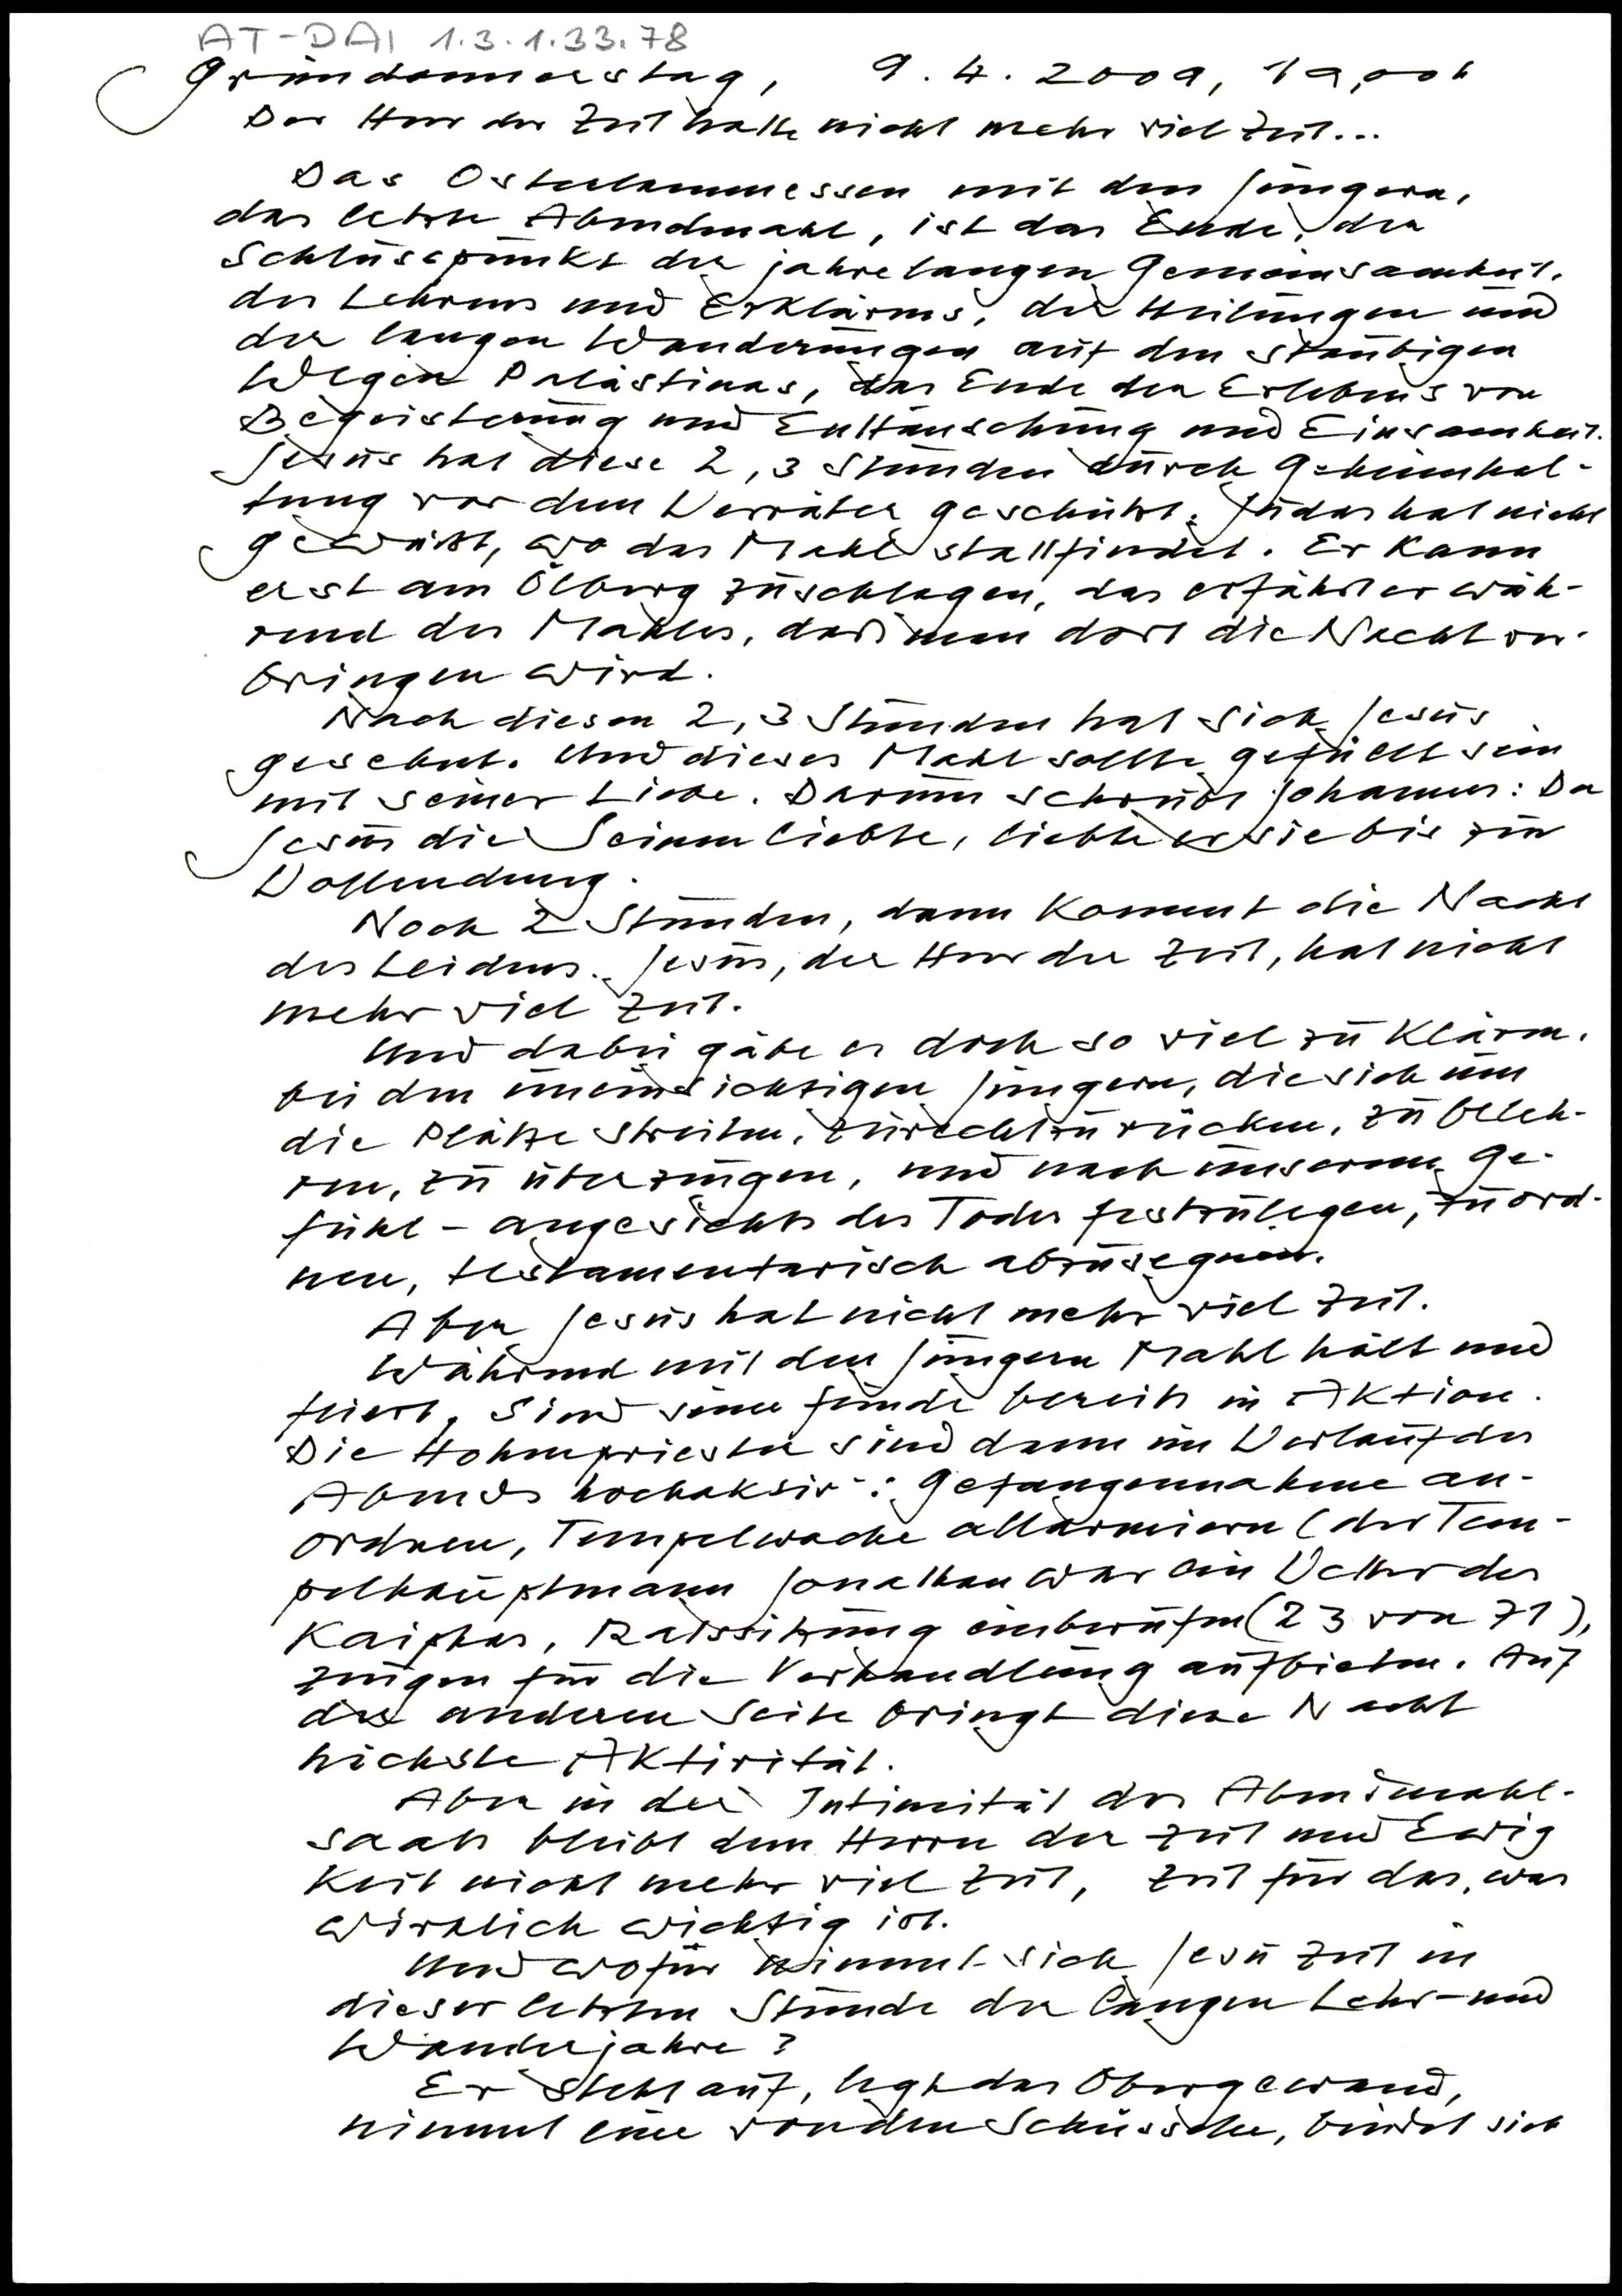 AT-DAI 1.3.1.33.78
Gründonnerstag, 9.4.2009, 19,00h
Der Herr der Zeit hatte nicht mehr viel Zeit...
Das Osterlammessen mit den Jüngern,
das letzte Abendmahl, ist das Ende, der
Schlusspunkt der jahrelangen Gemeinsamkeit,
des Lehrens und Erklärens, der Heilungen und
der langen Wanderungen auf den staubigen
Wegen Palästinas, das Ende des Erlebens von
Begeisterung und Enttäuschung und Einsamkeit.
Jesus hat diese 2, 3 Stunden durch Geheimhal-
tung vor dem Verräter geschützt. Judas hat nicht
gewußt, wo das Mahl stattfindet. Er kann
erst am Ölberg zuschlagen, das erfährt er wäh-
rend des Mahles, daß man dort die Nacht ver-
bringen wird.
Nach diesen 2, 3 Stunden hat sich Jesus
gesehnt. Und dieses Mahl sollte gefüllt sein
mit seiner Liebe. Darum schreibt Johannes: Da
Jesus die Seinen liebte, liebte er sie bis zur
Vollendung.
Noch 2 Stunden, dann kommt die Nacht
des Leidens. Jesus, der Herr der Zeit, hat nicht
mehr viel Zeit.
Und dabei gäbe es doch so viel zu klären,
bei den uneinsichtigen Jüngern, die sich um
die Plätze streiten, zurechtzurücken, zu beleh-
ren, zu überzeugen, und nach unserem Ge-
fühl - angesichts des Todes festzulegen, zu ord-
nen, testamentarisch abzusegnen.
Aber Jesus hat nicht mehr viel Zeit.
Während mit den Jüngern Mahl hält und
feiert, sind seine Feinde bereits in Aktion.
Die Hohenpriester sind dann im Verlauf des
Abends hochaktiv: Gefangennahme an-
ordnen, Tempelwache allarmieren (der Tem-
pelhauptmann Jonathan war ein Vetter des
Kaiphas, Ratssitzung einberufen (23 von 71),
Zeugen für die Verhandlung aufbieten. Auf
der anderen Seite bringt diese Nacht
höchste Aktivität.
Aber in der Intimität des Abendmahl-
saals bleibt dem Herrn der Zeit und Ewig
keit nicht mehr viel Zeit, Zeit für das, was
wirklich wichtig ist.
Und wofür nimmt sich Jesu Zeit in
dieser letzten Stunde der langen Lehr- und
Wanderjahre?
Er steht auf, legt das Obergewand,
nimmt eine von den Schüsseln, bindet sich